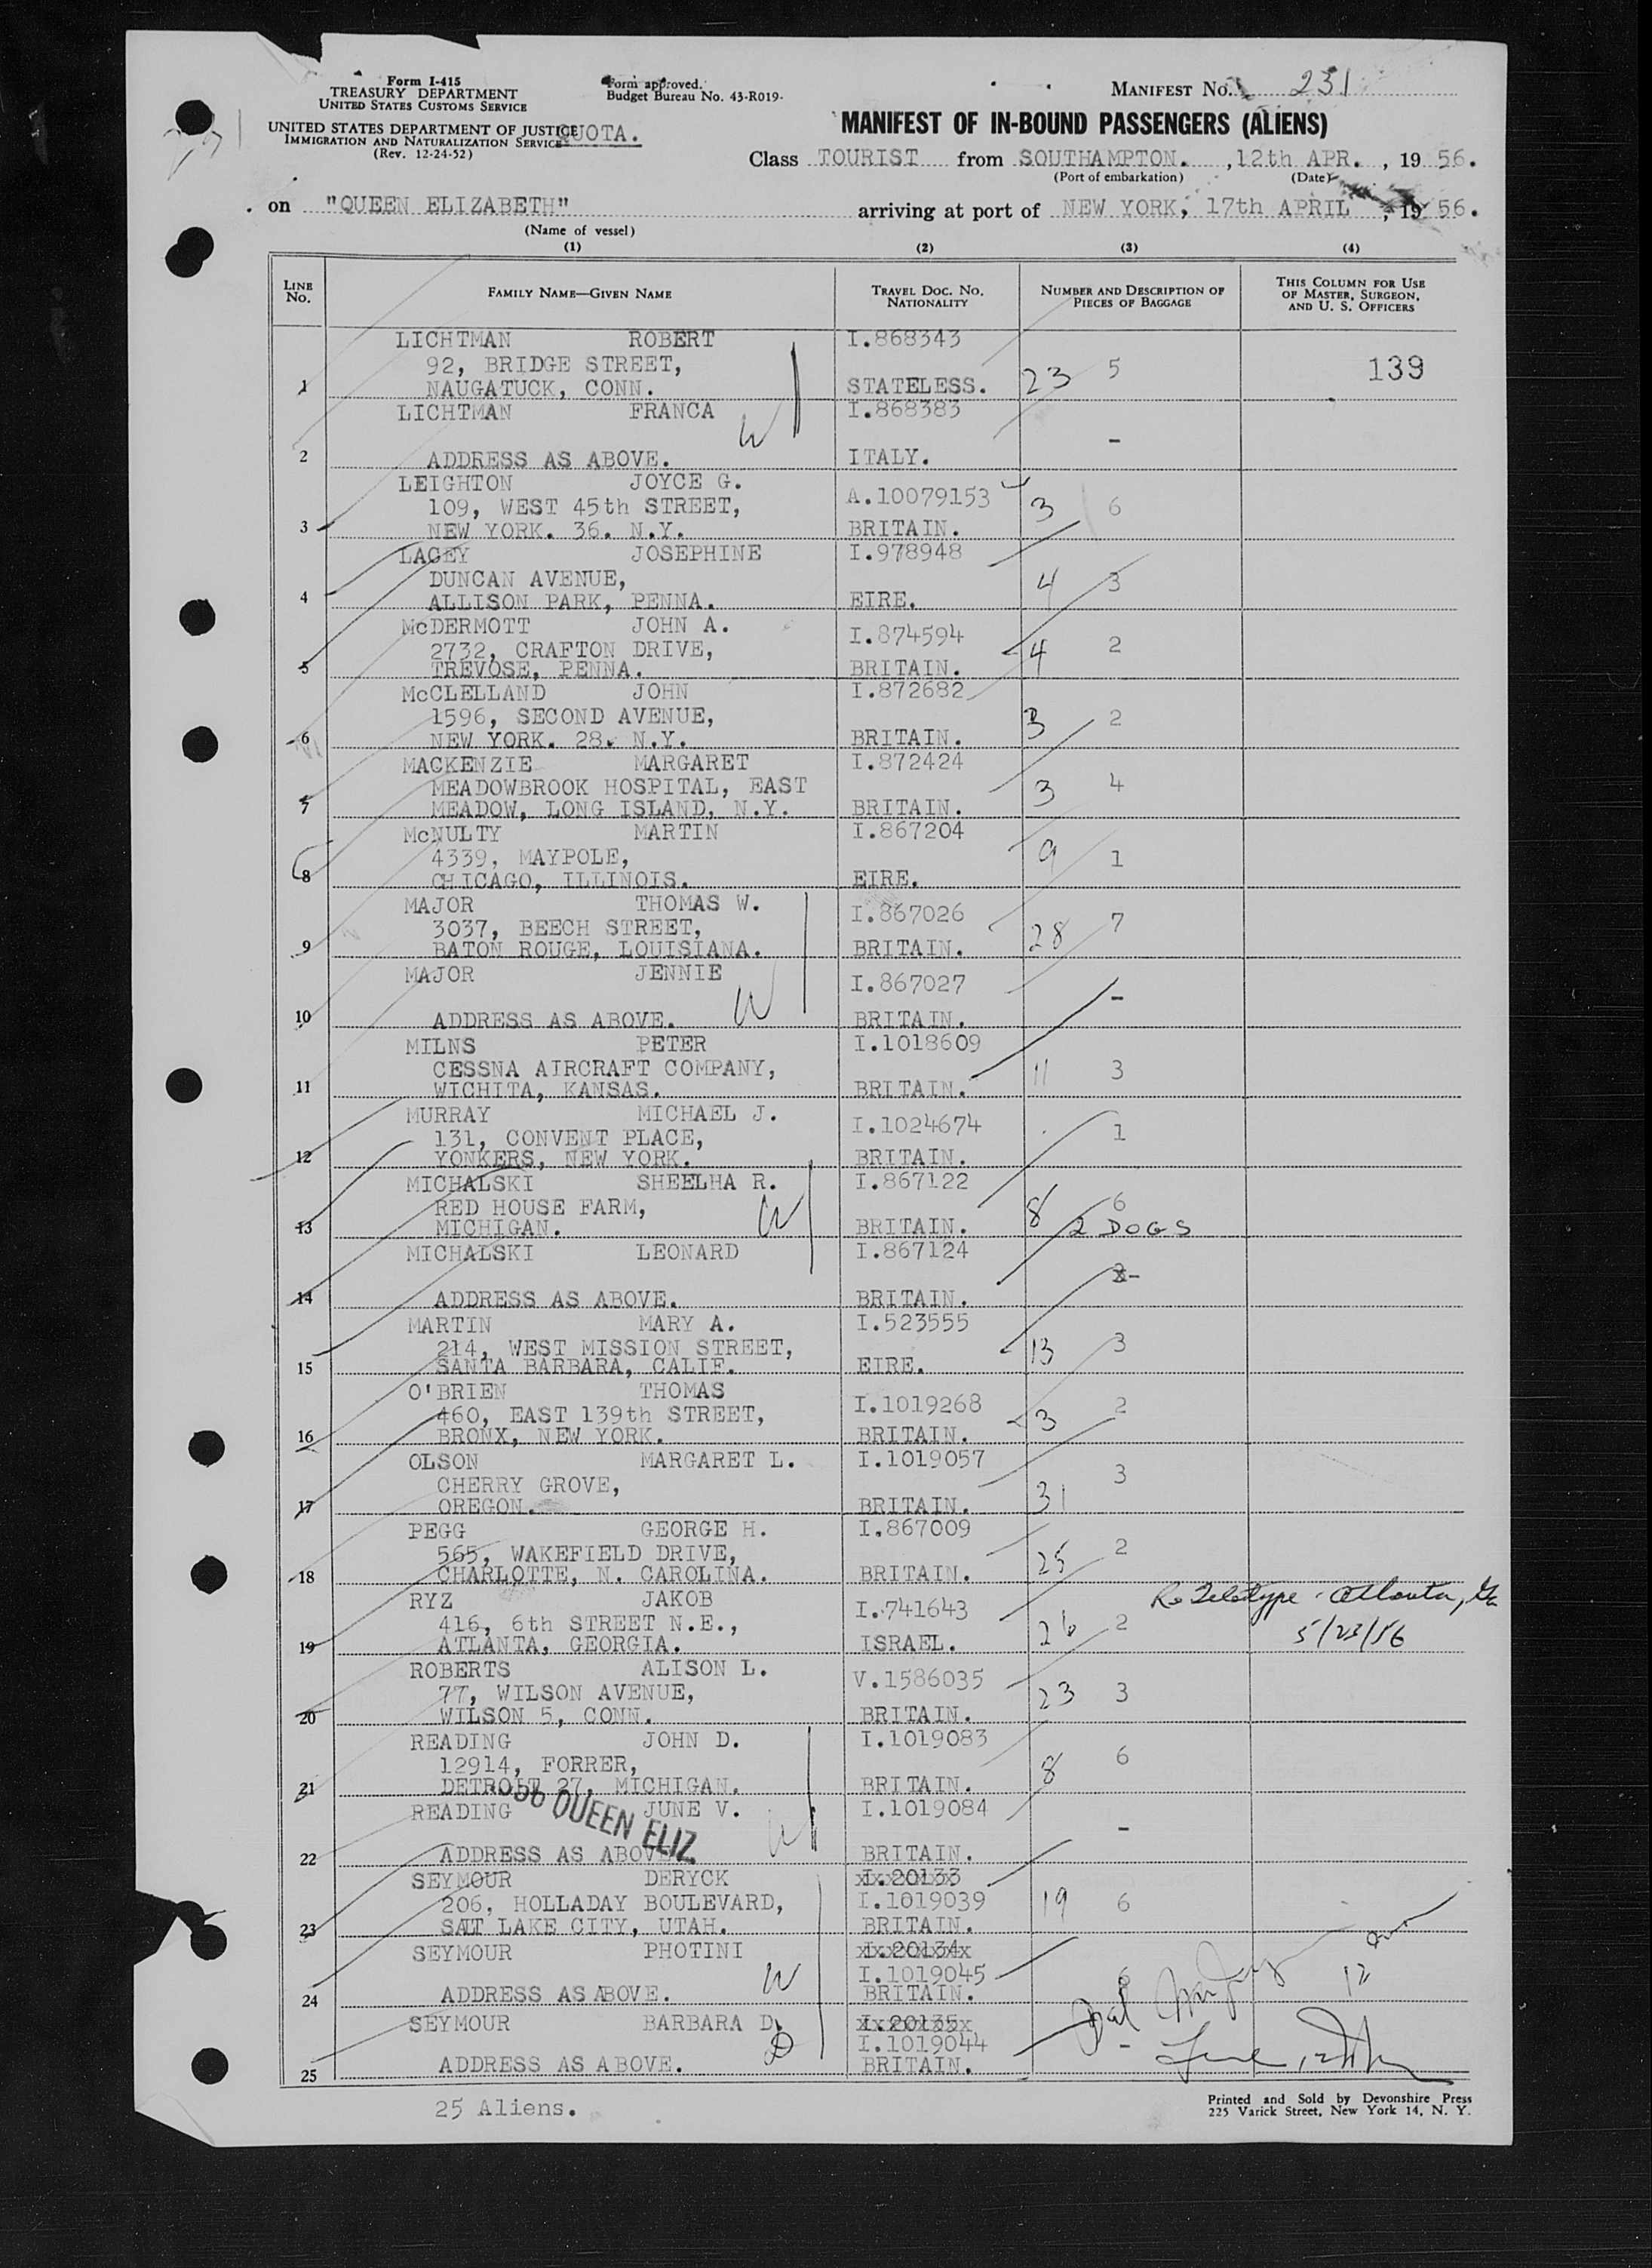 Form I-415
TREASURY DEPARTMENT
UNITED STATES CUSTOMS SERVICE
UNITED STATES DEPARTMENT OF JUSTICE
IMMIGRATION AND NATURALIZATION SERVICE
(Rev. 12-24-52)
QUOTA.
Form approved.
Budget Bureau No. 43-R019-
MANIFEST NO. 231
MANIFEST OF IN-BOUND PASSENGERS (ALIENS)
Class TOURIST from SOUTHAMPTON. , 12th APR. , 19 56.
(Port of embarkation) (Date)
on "QUEEN ELIZABETH" arriving at port of NEW YORK, 17th APRIL , 19 56.
(Name of vessel)
(1) (2) (3) (4)
LINE NO. FAMILY NAME—GIVEN NAME TRAVEL DOC. NO. NATIONALITY NUMBER AND DESCRIPTION OF PIECES OF BAGGAGE THIS COLUMN FOR USE OF MASTER, SURGEON, AND U. S. OFFICERS
LICHTMAN ROBERT I.868343
92, BRIDGE STREET, 23 5 139
1 NAUGATUCK, CONN. STATELESS.
LICHTMAN FRANCA I.868383
W -
2 ADDRESS AS ABOVE. ITALY.
LEIGHTON JOYCE G. A.10079153
109, WEST 45th STREET, 3 6
3 NEW YORK. 36. N.Y. BRITAIN.
LACEY JOSEPHINE I.978948
DUNCAN AVENUE, 4 3
4 ALLISON PARK, PENNA. EIRE.
McDERMOTT JOHN A. I.874594
2732, CRAFTON DRIVE, 4 2
5 TREVOSE, PENNA. BRITAIN.
McCLELLAND JOHN I.872682
1596, SECOND AVENUE, 3 2
6 NEW YORK. 28. N.Y. BRITAIN.
MACKENZIE MARGARET I.872424
MEADOWBROOK HOSPITAL, EAST 3 4
7 MEADOW, LONG ISLAND, N.Y. BRITAIN.
McNULTY MARTIN I.867204
4339, MAYPOLE, 9 1
8 CHICAGO, ILLINOIS. EIRE.
MAJOR THOMAS W. I.867026
3037, BEECH STREET, 28 7
9 BATON ROUGE, LOUISIANA. BRITAIN.
MAJOR JENNIE I.867027
W -
10 ADDRESS AS ABOVE. BRITAIN.
MILNS PETER I.1018609
CESSNA AIRCRAFT COMPANY, 11 3
11 WICHITA, KANSAS. BRITAIN.
MURRAY MICHAEL J. I.1024674
131, CONVENT PLACE, 1
12 YONKERS, NEW YORK. BRITAIN.
MICHALSKI SHEELHA R. I.867122
RED HOUSE FARM, W 8 6
13 MICHIGAN. BRITAIN. 2 DOGS
MICHALSKI LEONARD I.867124
-
14 ADDRESS AS ABOVE. BRITAIN.
MARTIN MARY A. I.523555
214, WEST MISSION STREET, 13 3
15 SANTA BARBARA, CALIF. EIRE.
O'BRIEN THOMAS I.1019268
460, EAST 139th STREET, 3 2
16 BRONX, NEW YORK. BRITAIN.
OLSON MARGARET L. I.1019057
CHERRY GROVE, 31 3
17 OREGON. BRITAIN.
PEGG GEORGE H. I.867009
565, WAKEFIELD DRIVE, 25 2
18 CHARLOTTE, N. CAROLINA. BRITAIN.
RYZ JAKOB I.741643 Re Teletype - Atlanta, Ga
416, 6th STREET N.E., 26 2 5/23/56
19 ATLANTA, GEORGIA. ISRAEL.
ROBERTS ALISON L. V.1586035
77, WILSON AVENUE, 23 3
20 WILSON 5, CONN. BRITAIN.
READING JOHN D. I.1019083
12914, FORRER, 8 6
21 DETROIT 27, MICHIGAN. BRITAIN.
QUEEN ELIZ.
READING JUNE V. I.1019084
W -
22 ADDRESS AS ABOVE. BRITAIN.
SEYMOUR DERYCK I.20133
206, HOLLADAY BOULEVARD, I.1019039 19 6
23 SALT LAKE CITY, UTAH. BRITAIN.
SEYMOUR PHOTINI I.20134
W I.1019045 12
24 ADDRESS AS ABOVE. BRITAIN.
SEYMOUR BARBARA D. I.20135
D I.1019044 -
25 ADDRESS AS ABOVE. BRITAIN.
25 Aliens.
Printed and Sold by Devonshire Press
225 Varick Street, New York 14, N. Y.